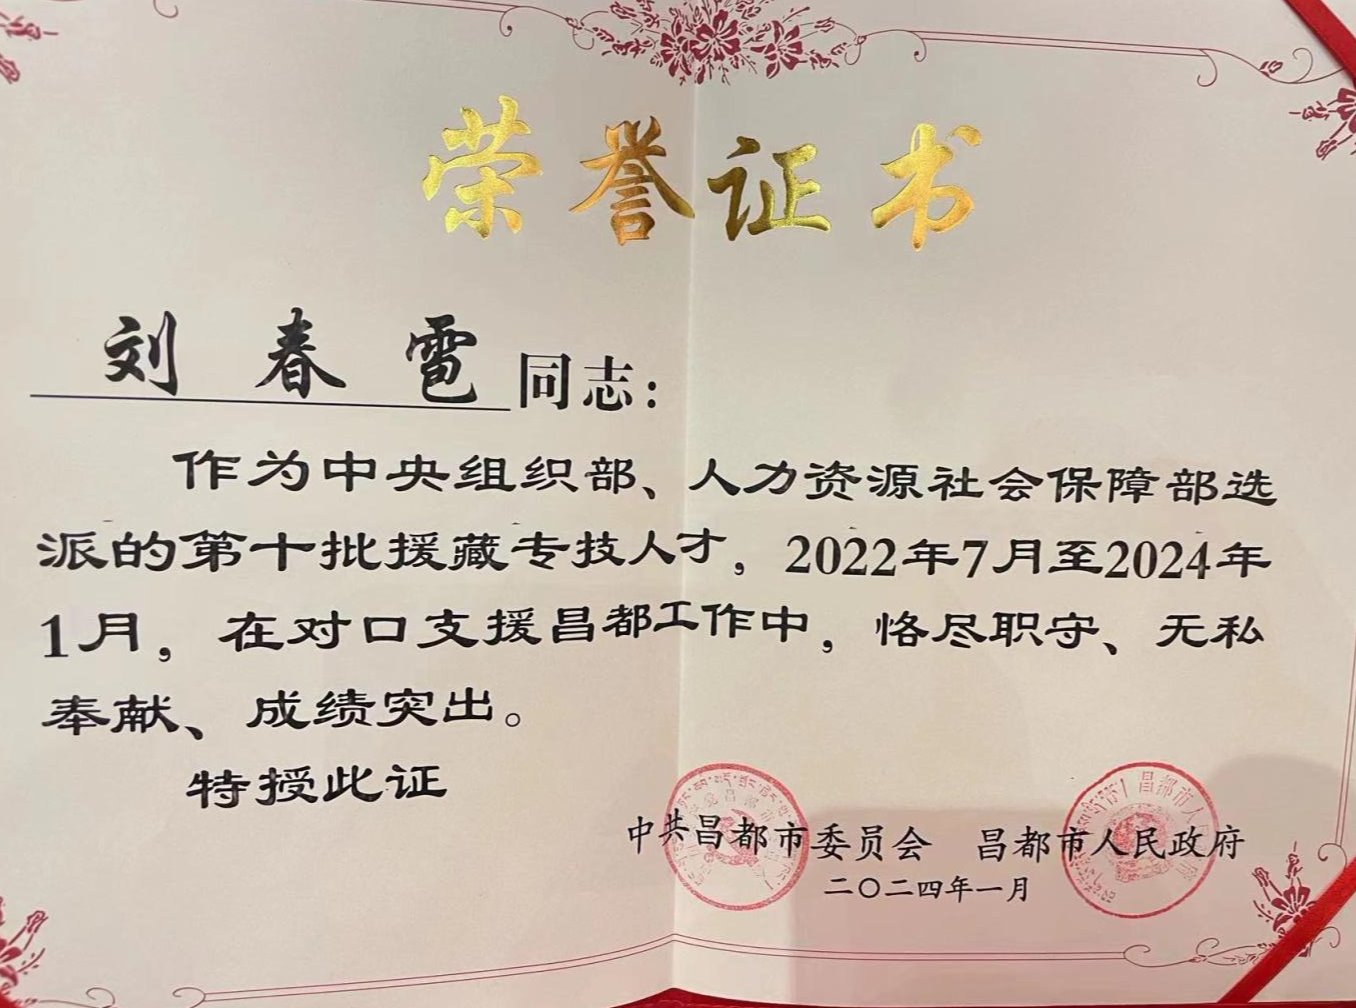 荣誉证书
刘春雹同志：
作为中央组织部、人力资源社会保障部选
派的第十批援藏专技人才，2022年7月至2024年
1月，在对口支援昌都工作中，恪尽职守、无私
奉献、成绩突出。
特授此证
中共昌都市委员会 昌都市人民政府
二〇二四年一月